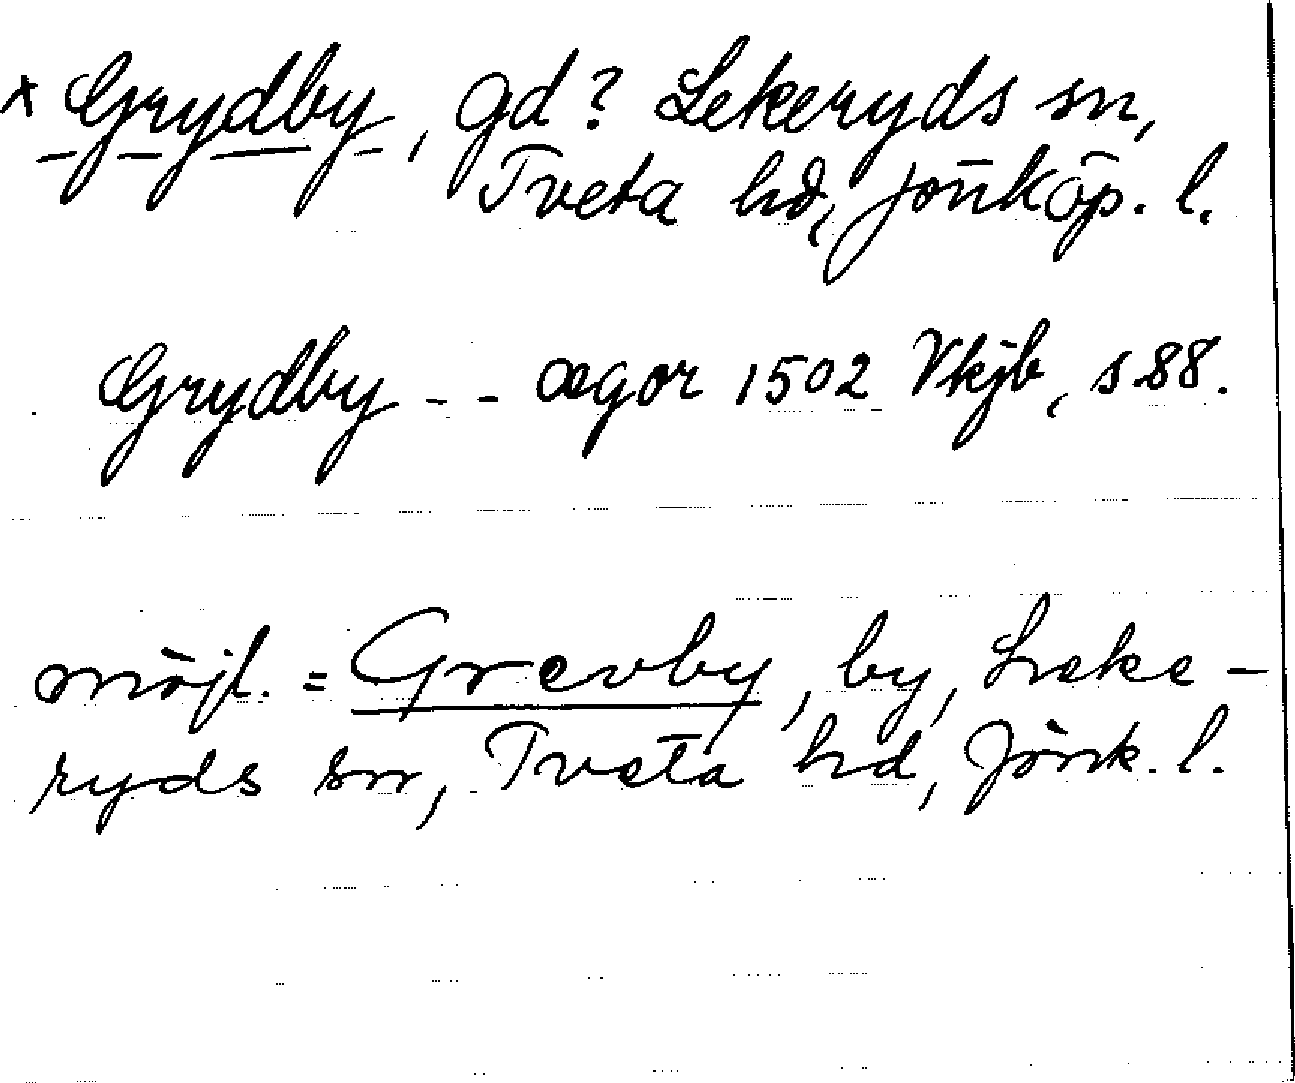 x Grydby, gd? Lekeryds sn,
Tveta hd, Jönköp. l.
Grydby - - ægor 1502 Vkjb, s 88.
möjl. = Grevby, by, Leke-
ryds sn, Tveta hd, Jönk. l.